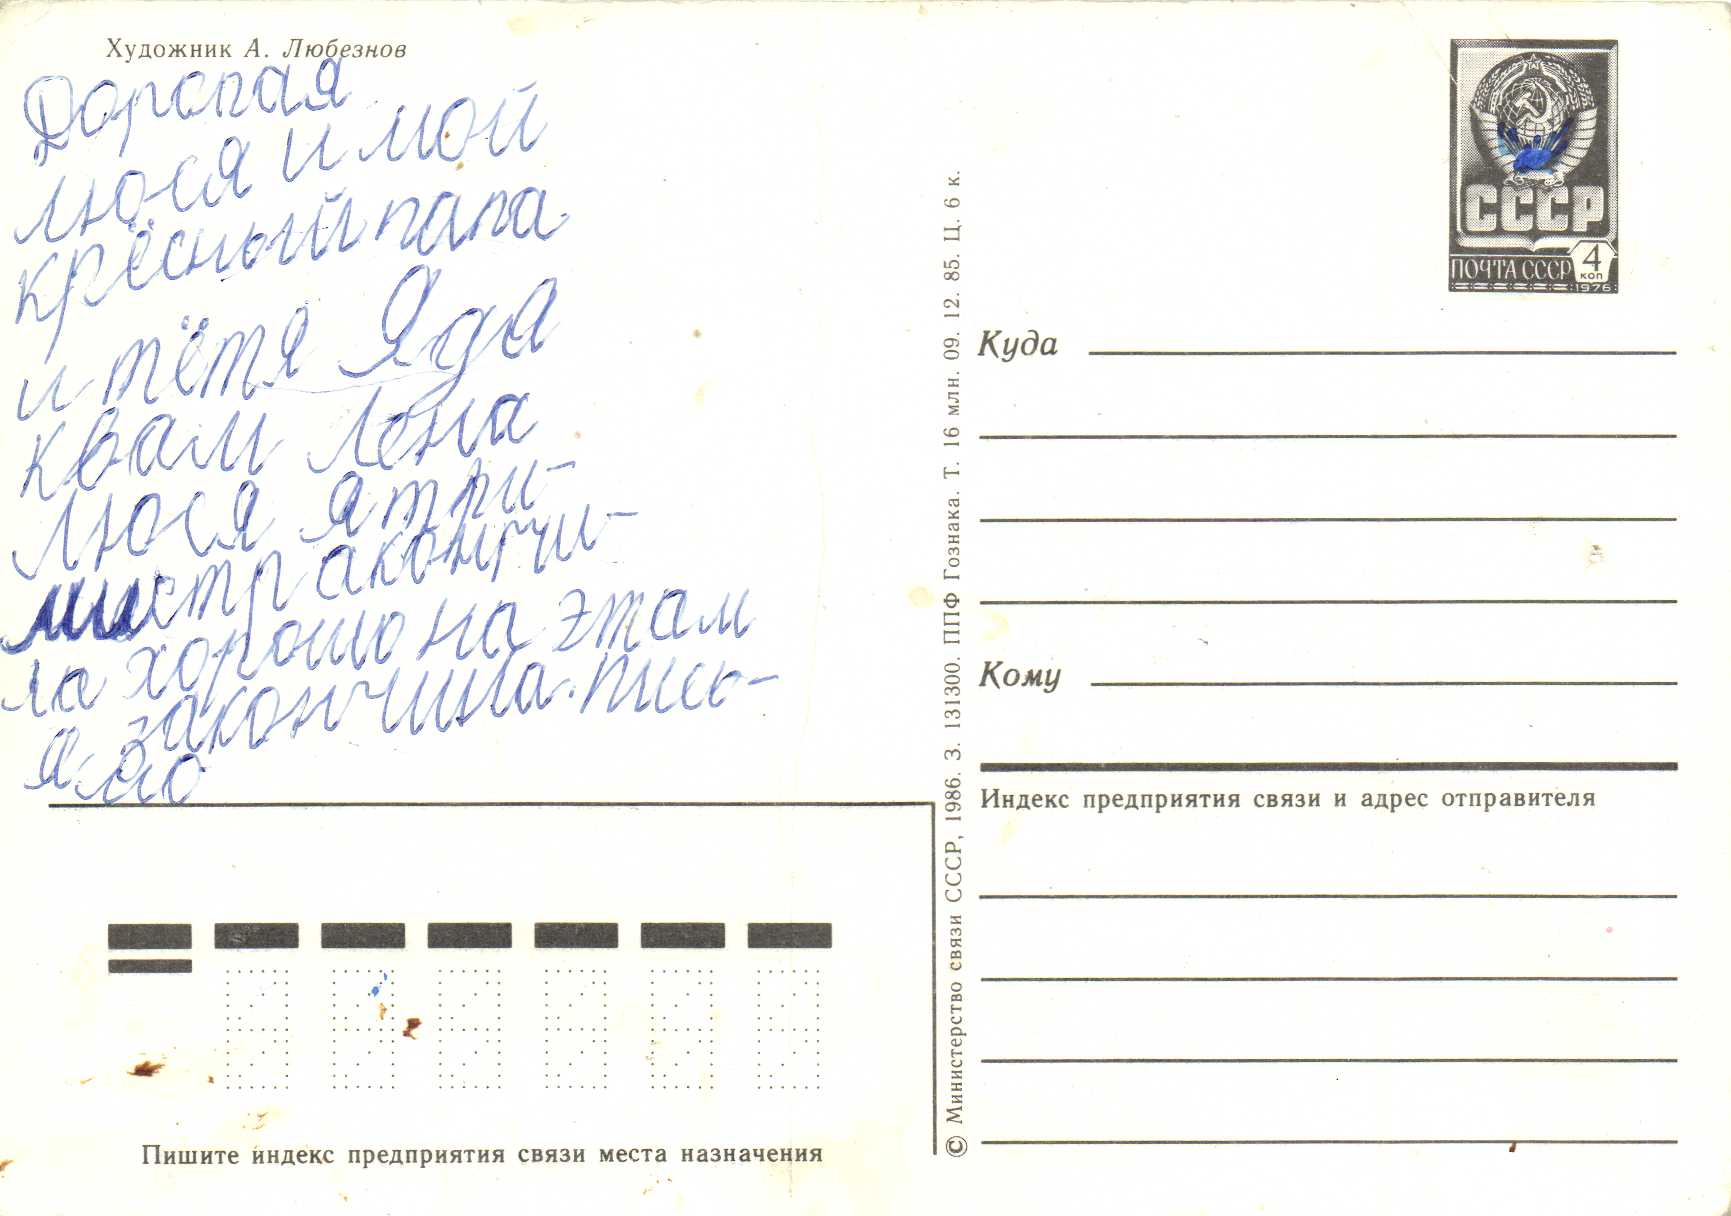 Художник А. Любезнов
Дорогая
люся и мой
крёсный папа
и тётя Яда
квам Лена
люся я три-
местр акончи-
ла хорошо на этам
я закончила пись-
мо
СССР
ПОЧТА СССР 4 коп
1976
Куда
Кому
Индекс предприятия связи и адрес отправителя
© Министерство связи СССР, 1986. З. 131300. ППФ Гознака. Т. 16 млн. 09. 12. 85. Ц. 6 к.
Пишите индекс предприятия связи места назначения